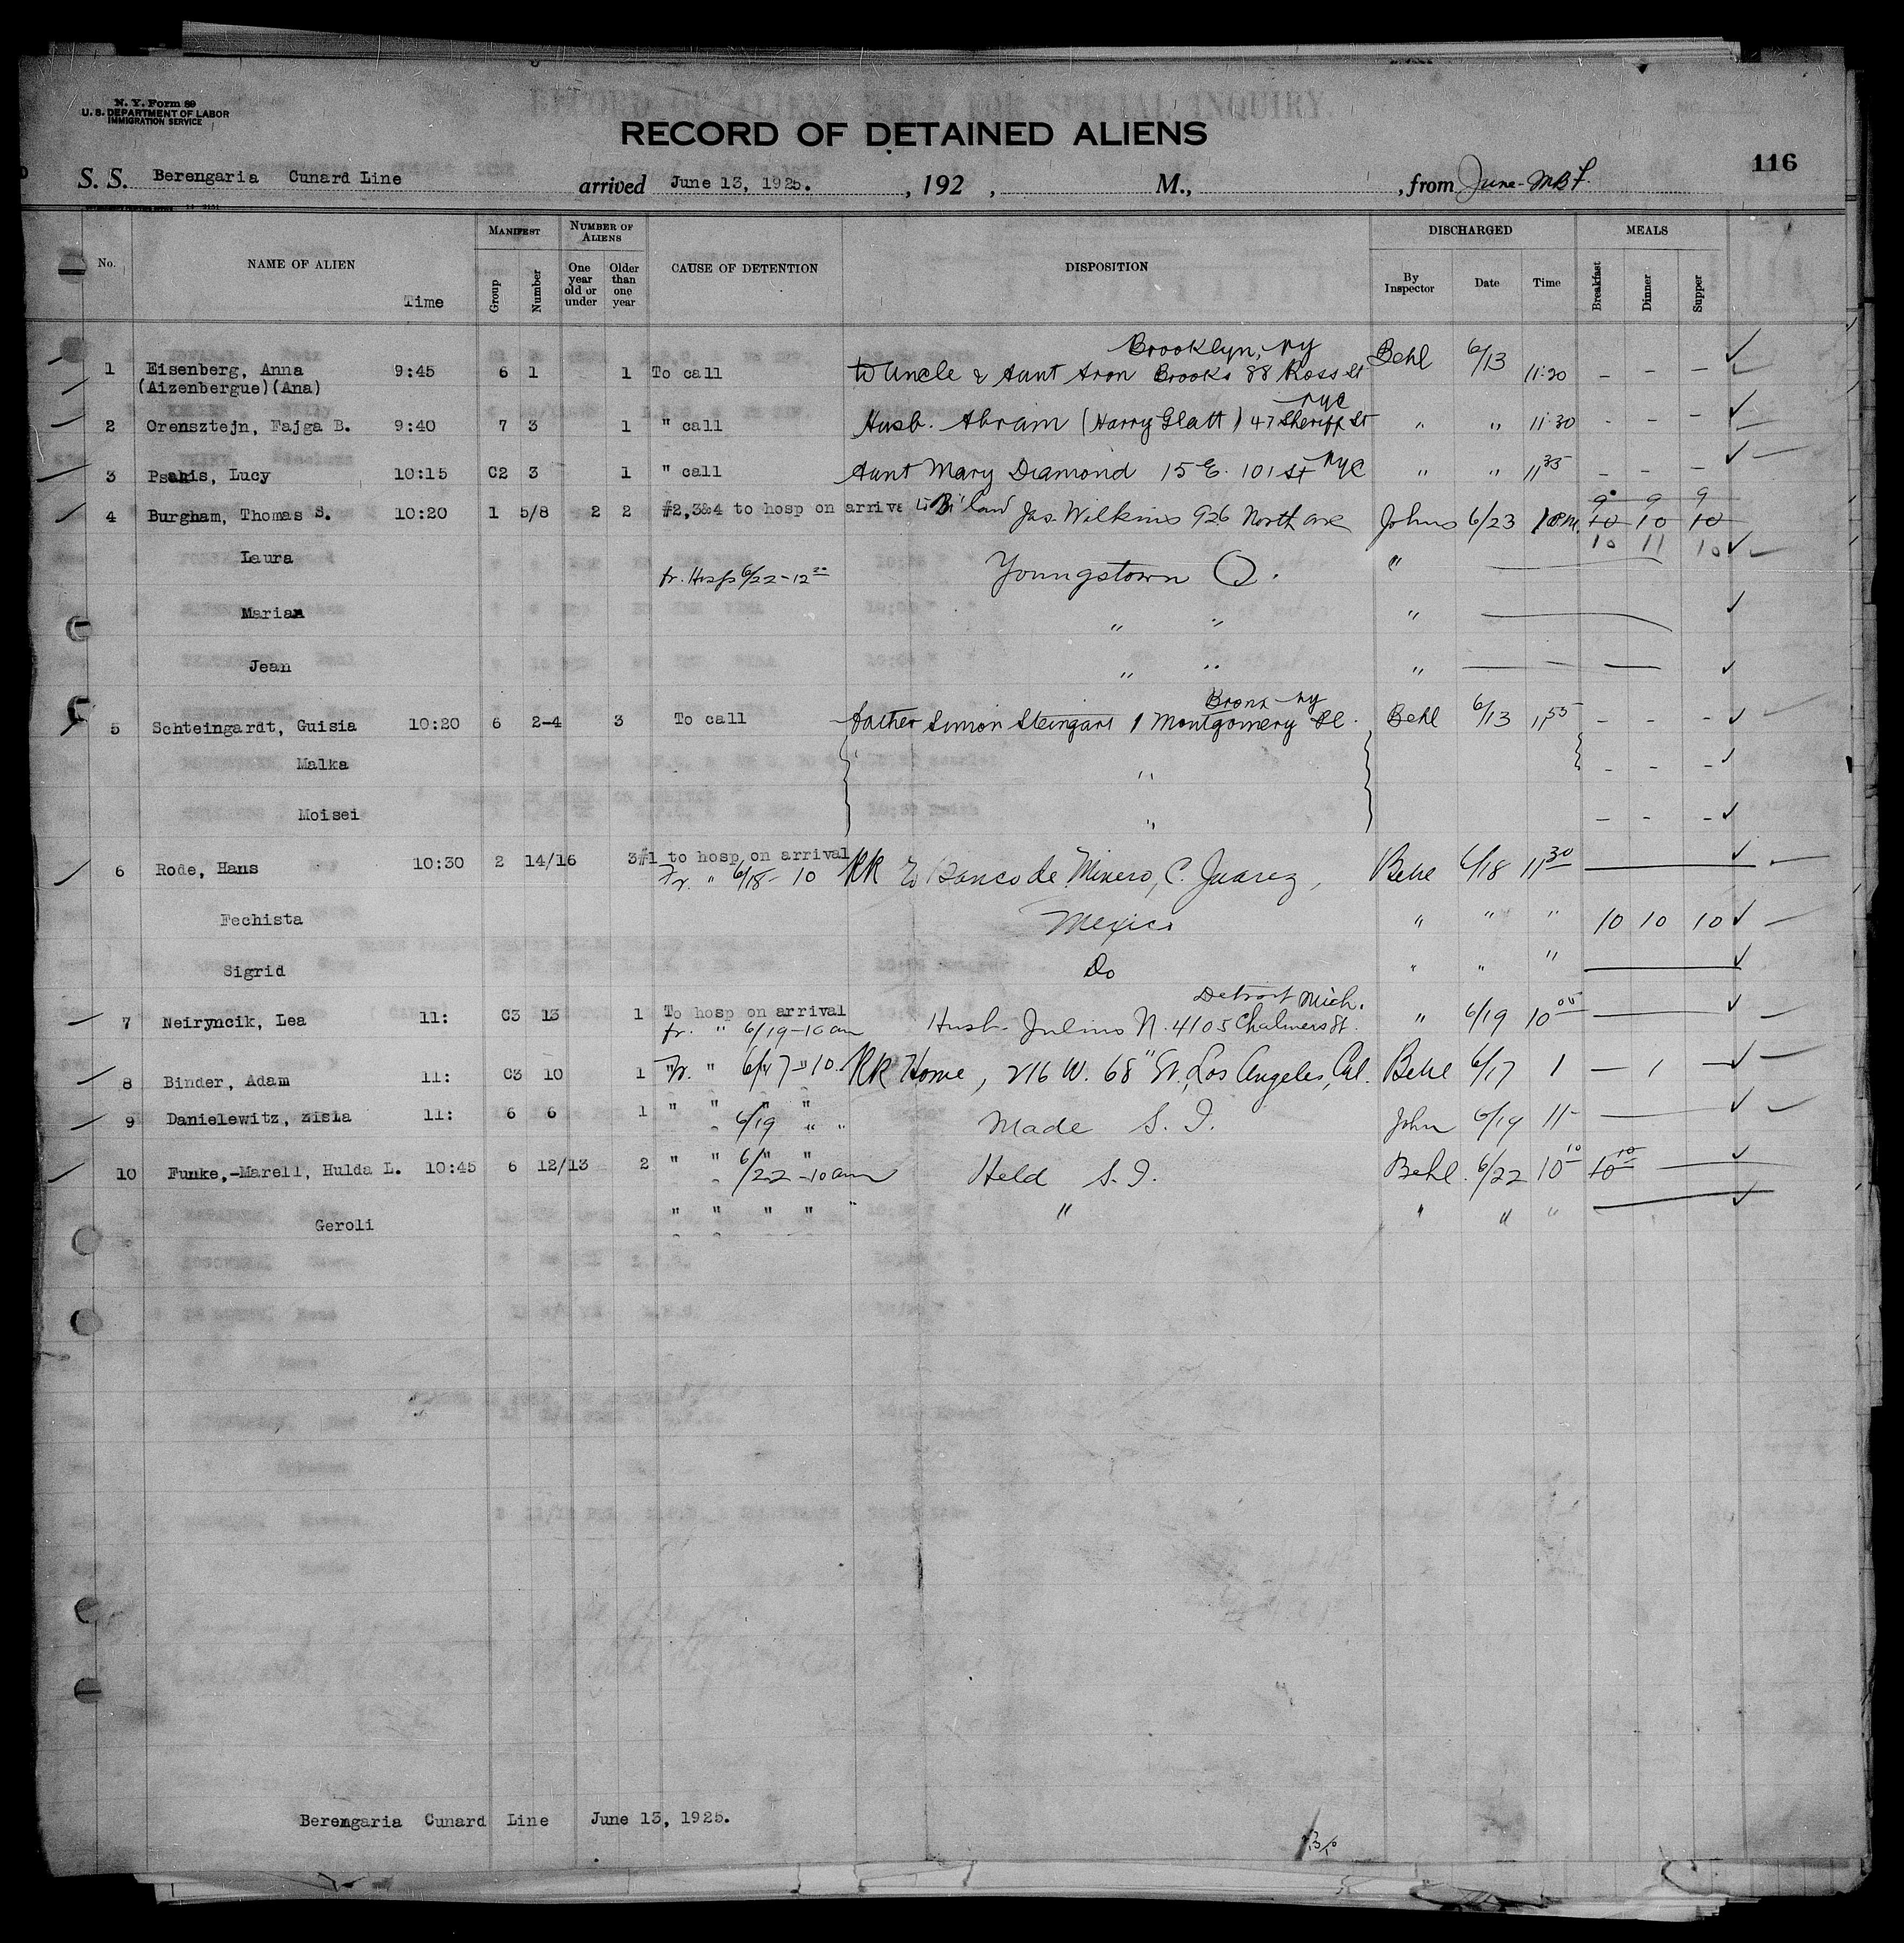 N. Y. Form 89
U. S. DEPARTMENT OF LABOR
IMMIGRATION SERVICE
RECORD OF DETAINED ALIENS
116
S. S. Berengaria Cunard Line arrived June 13, 1925. , 192 , M., , from June - MBF.
No. NAME OF ALIEN Time MANIFEST Group Number NUMBER OF ALIENS One year old or under Older than one year CAUSE OF DETENTION DISPOSITION DISCHARGED By Inspector Date Time MEALS Breakfast Dinner Supper
Brooklyn, NY
1 Eisenberg, Anna 9:45 6 1 1 To call to Uncle & Aunt Aron Brooks 88 Ross St Behl 6/13 11:20 - - - ✓
(Aizenbergue)(Ana)
NYC
2 Orensztejn, Fajga B. 9:40 7 3 1 " call Husb. Abram (Harry Glatt) 47 Sheriff St " " 11:30 - - - ✓
3 Psahis, Lucy 10:15 C2 3 1 " call Aunt Mary Diamond 15 E. 101 St NYC " " 11 35 - - - ✓
9 9 9
4 Burgham, Thomas S. 10:20 1 5/8 2 2 #2,3&4 to hosp on arriva Jas. Wilkins 926 North Ave Johns 6/23 1 PM. 10 10 10
10 11 10 ✓
Laura fr. Hosp 6/22-12 30 Youngstown O. "
Marian " " " ✓
Jean " " " ✓
Bronx NY
5 Schteingardt, Guisia 10:20 6 2-4 3 To call father Simon Steingart 1 Montgomery Pl. Behl 6/13 1 55 - - - ✓
Malka " - - - ✓
Moisei " - - - ✓
6 Rode, Hans 10:30 2 14/16 3 #1 to hosp on arrival ✓
Fr. " 6/18 - 10 RR to Banco de Minero, C. Juarez, Behl 6/18 11 30
Fechista Mexico " " " 10 10 10 ✓
Sigrid Do " " " ✓
Detroit Mich.
7 Neiryncik, Lea 11: C3 13 1 To hosp on arrival ✓
fr. " 6/19-10 am Husb- Julius N. 4105 Chalmers St. " 6/19 10 00
8 Binder, Adam 11: C3 10 1 Fr. " 6/17 - 10. RR Home, 216 W. 68" St., Los Angeles, Cal. Behl 6/17 1 - 1 - ✓
9 Danielewitz, Zisla 11: 6 6 1 " " " " ✓
" 6/19 " " Made S. I. John 6/19 11-
10 Funke,-Marell, Hulda L. 10:45 6 12/13 2 " " " " ✓
" 6/22 - 10 am Held S. I. Behl. 6/22 10 10 10 10
Geroli " " " " " " " " " ✓
Berengaria Cunard Line June 13, 1925.